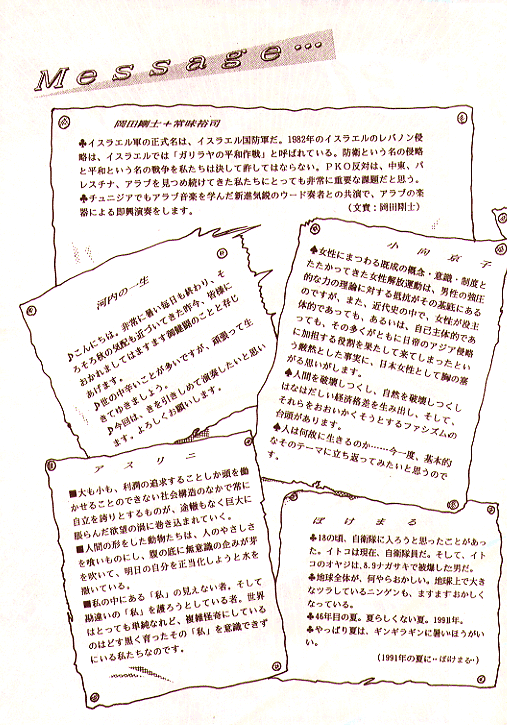 Message…
岡田剛士+常味裕司
♣イスラエル軍の正式名は、イスラエル国防軍だ。1982年のイスラエルのレバノン侵
略は、イスラエルでは「ガリラヤの平和作戦」と呼ばれている。防衛という名の侵略
と平和という名の戦争を私たちは決して許してはならない。PKO反対は、中東、パ
レスチナ、アラブを見つめ続けてきた私たちにとっても非常に重要な課題だと思う。
♣チュニジアでもアラブ音楽を学んだ新進気鋭のウード奏者との共演で、アラブの楽
器による即興演奏をします。
(文責:岡田剛士)
河内の一生
♪こんにちは。非常に暑い毎日も終わり、そ
ろそろ秋の気配も近づいてきた昨今、皆様に
おかれましてはますます御健闘のことと存じ
あげます。
♪世の中辛いことが多いですが、頑張って生
きてゆきましょう。
♪今回は、きを引きしめて演奏したいと思い
ます。よろしくお願いします。
小向京子
♠女性にまつわる既成の概念・意識・制度と
たたかってきた女性解放運動は、男性の強圧
的な力の論理に対する抵抗がその基底にある
のですが、また、近代史の中で、女性が没主
体的であっても、あるいは、自己主体的であ
っても、その多くがともに日帝のアジア侵略
に加担する役割を果たして来てしまったとい
う厳然とした事実に、日本女性として胸の塞
がる思いがします。
♠人間を破壊しつくし、自然を破壊しつくし
はなはだしい経済格差を生み出し、そして、
それらをおおいかくそうとするファシズムの
台頭があります。
♠人は何故に生きるのか……今一度、基本的
なそのテーマに立ち返ってみたいと思うので
す。
アスリニ
■大も小も、利潤の追求することしか頭を働
かせることのできない社会構造のなかで常に
自立を誇りとするものが、途轍もなく巨大に
脹らんだ欲望の渦に巻き込まれていく。
■人間の形をした動物たちは、人のやさしさ
を喰いものにし、腹の底に無意識の企みが芽
を吹いて、明日の自分を正当化しようと水を
撒いている。
■私の中にある「私」の見えない者。そして
勘違いの「私」を護ろうとしている者。世界
はとっても単純なれど、複雑怪奇にしている
のはどす黒く育ったその「私」を意識できず
にいる私たちなのです。
ぼけまる
♣18の頃、自衛隊に入ろうと思ったことがあっ
た。イトコは現在、自衛隊員だ。そして、イト
コのオヤジは、8.9ナガサキで被爆した男だ。
♣地球全体が、何やらおかしい。地球上で大き
なツラしているニンゲンも、ますますおかしく
なっている。
♣46年目の夏。夏らしくない夏。1991年。
♣やっぱり夏は、ギンギラギンに暑いほうがい
い。
(1991年の夏に‥ぼけまる‥)